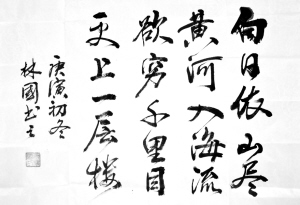 白日依山尽
黄河入海流
欲穷千里目
更上一层楼
庚寅初冬
林國书